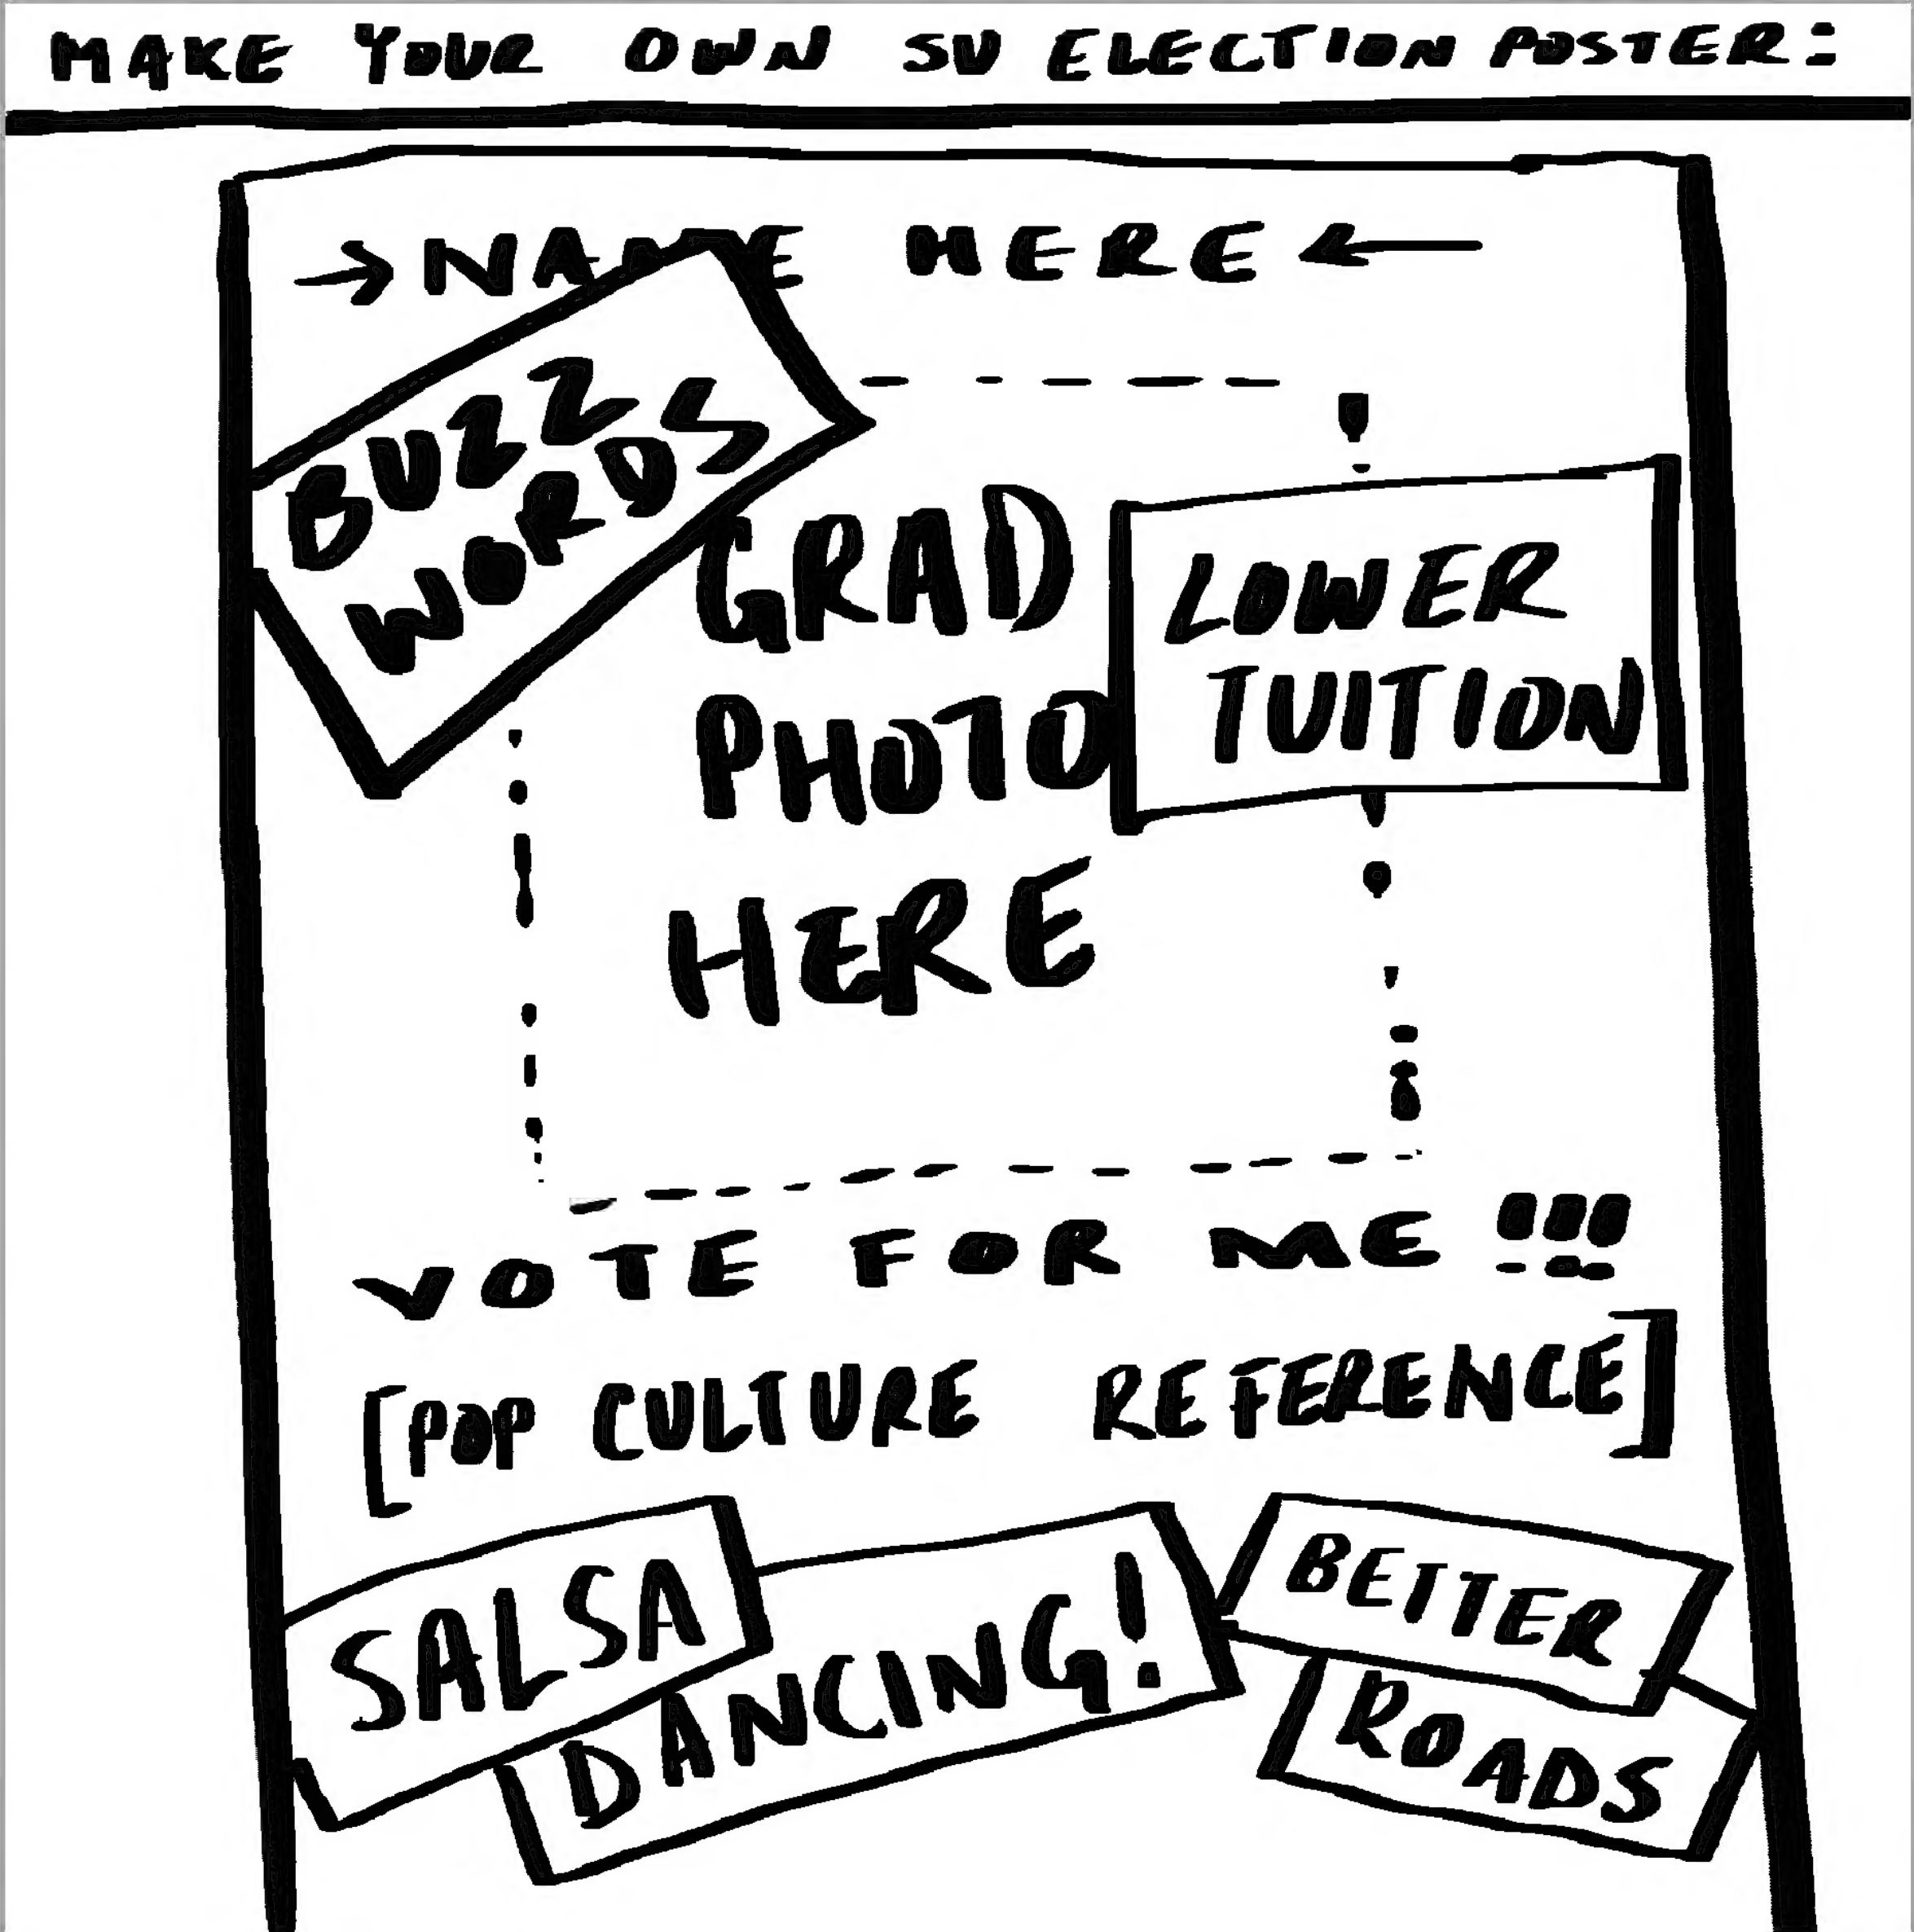 MAKE YOUR OWN SU ELECTION POSTER:
→ NAME HERE ←
BUZZ
WORDS
GRAD
PHOTO
HERE
LOWER
TUITION
VOTE FOR ME !!!
[POP CULTURE REFERENCE]
SALSA
DANCING!
BETTER
ROADS